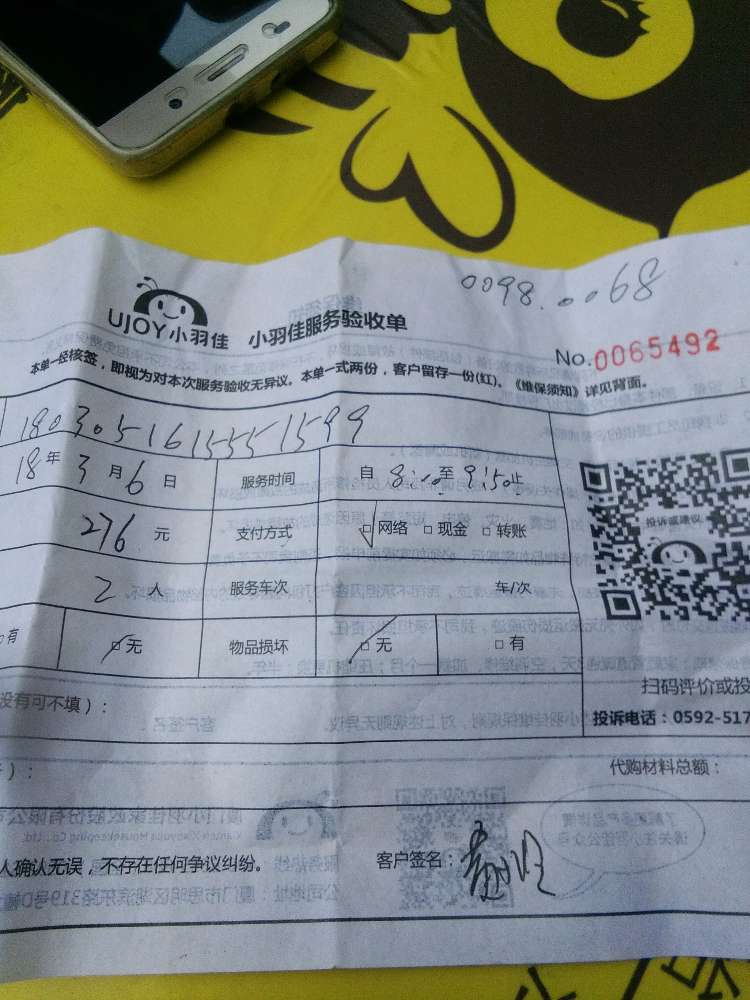 0098.0068
UJOY小羽佳 小羽佳服务验收单
No.0065492
本单一经核签，即视为对本次服务验收无异议。本单一式两份，客户留存一份(红)。《维保须知》详见背面。
18030516155515 99
18年3月6日 服务时间 自8:10至9:50止
276元 支付方式 □网络 □现金 □转账
投诉或建议
2人 服务车次 车/次
□有 □无 物品损坏 □无 □有
没有可不填）：
扫码评价或投
投诉电话：0592-517
）：
代购材料总额：
人确认无误，不存在任何争议纠纷。 客户签名：